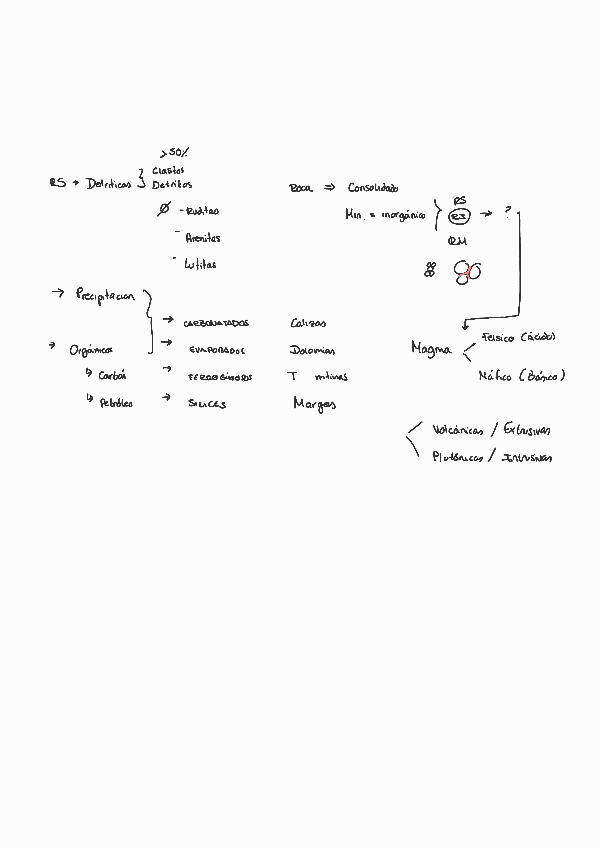 >50%
RS → Detríticas } Clastos
Detritos
Ø - Ruditas
- Arenitas
- Lutitas
→ Precipitacion
→ Orgánicos
↳ Carbón
↳ Petróleo
→ CARBONATADOS Calizas
→ EVAPORADOS Dolomias
→ FERRUGINOSOS T
→ SILICES Margas
Roca ⇒ Consolidado
Min. = inorgánico } RS
RI → ?
RM
Magma < Félsico (ácido)
Máfico (Básico)
< Volcánicas / Extrusivas
Plutónicas / Intrusivas